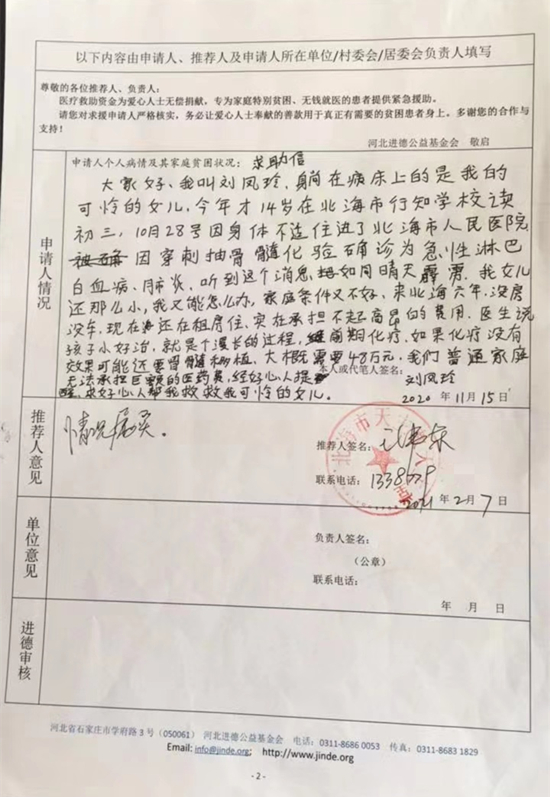 以下内容由申请人、推荐人及申请人所在单位/村委会/居委会负责人填写
尊敬的各位推荐人、负责人：
医疗救助资金为爱心人士无偿捐献，专为家庭特别贫困、无钱就医的患者提供紧急援助。
请您对求援申请人严格核实，务必让爱心人士奉献的善款用于真正有需要的贫困患者身上。多谢您的合作与
支持！
河北进德公益基金会 敬启
申请人情况
申请人个人病情及其家庭贫困状况：求助信
大家好、我叫刘凤玲、躺在病床上的是我的
可怜的女儿，今年才14岁在北海市行知学校读
初三，10月28号因身体不适住进了北海市人民医院
因穿刺抽骨髓化验确诊为急性淋巴
白血病、肺炎、听到这个消息如同晴天霹雳，我女儿
还那么小，我又能怎么办，家庭条件又不好，来北海六年，没房
没车，现在还在租房住、实在承担不起高昂的费用，医生说
孩子小好治，就是个漫长的过程，前期化疗，如果化疗没有
效果可能还要骨髓移植，大概需要48万元，我们普通家庭
无法承担巨额的医药费，经好心人提
醒，求好心人帮我救救我可怜的女儿。
本人或代笔人签名：
刘凤玲
2020年11月15日
推荐人意见
情况属实。
推荐人签名：
联系电话：
2021年2月7日
北海市天
单位意见
负责人签名：
（公章）
联系电话：
年 月 日
进德审核
河北省石家庄市学府路3号（050061） 河北进德公益基金会 电话：0311-8686 0053 传真：0311-8683 1829
Email: info@jinde.org; http://www.jinde.org
- 2 -